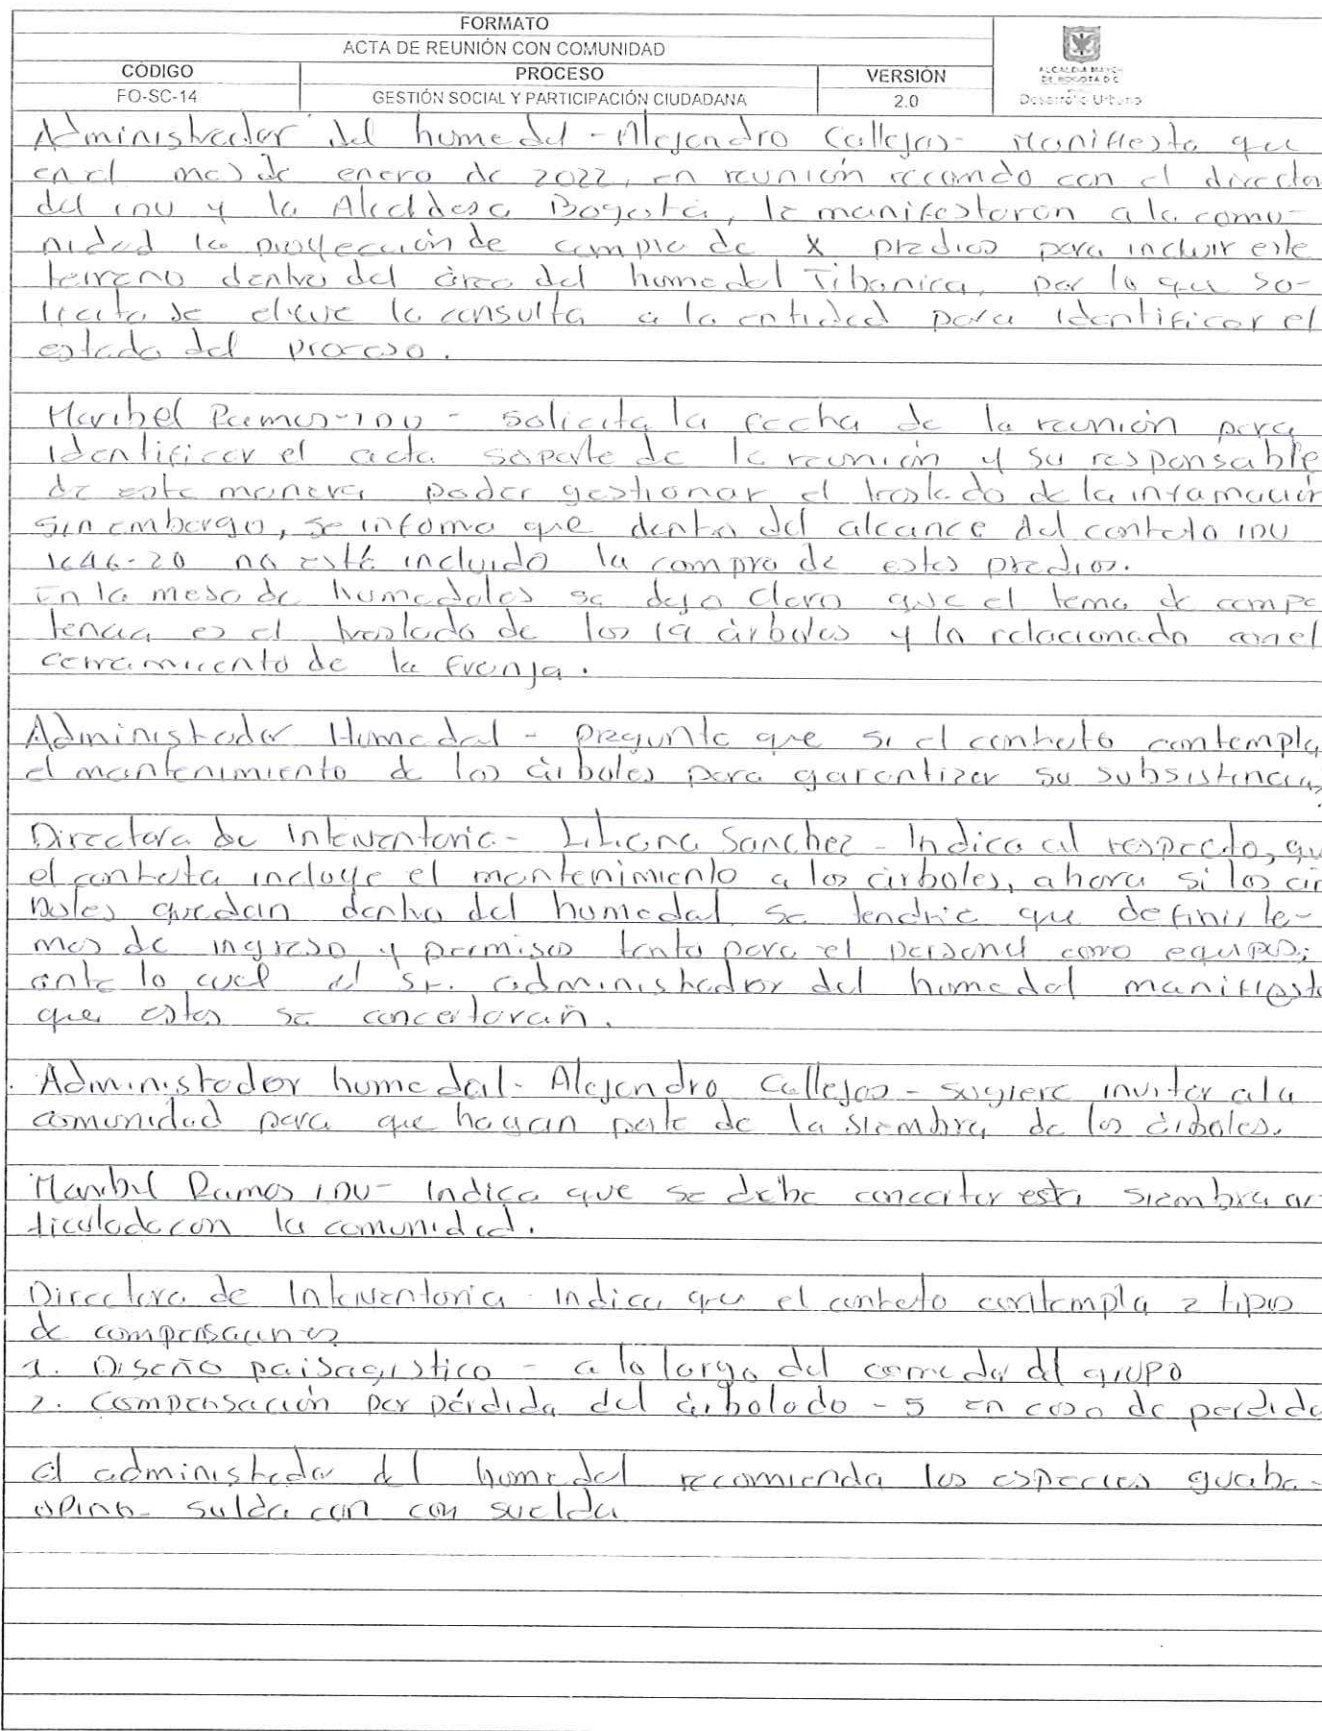 FORMATO
ACTA DE REUNIÓN CON COMUNIDAD
CÓDIGO PROCESO VERSIÓN
FO-SC-14 GESTIÓN SOCIAL Y PARTICIPACIÓN CIUDADANA 2.0
ALCALDÍA MAYOR
DE BOGOTÁ D.C.
Desarrollo Urbano
Administrador del humedal - Alejandro Callejas - Manifiesta que
en el mes de enero de 2022, en reunión recorrido con el director
del IDU y la Alcaldesa Bogotá, le manifestaron a la comu-
nidad la proyección de compra de X predios para incluir este
terreno dentro del área del humedal Tibanica, por lo que so-
licita se eleve la consulta a la entidad para identificar el
estado del proceso.
Maribel Ramos - IDU - solicita la fecha de la reunión para
identificar el acta soporte de la reunión y su responsable
de esta manera poder gestionar el traslado de la información
sin embargo, se informa que dentro del alcance del contrato IDU
1646-20 no está incluido la compra de estos predios.
En la mesa de humedales se dejo claro que el tema de compe
tencia es el traslado de los 19 árboles y lo relacionado con el
cerramiento de la franja.
Administrador Humedal - pregunta que si el contrato contempla
el mantenimiento de los árboles para garantizar su subsistencia
Directora de Interventoria - Liliana Sanchez - Indica al respecto, que
el contrato incluye el mantenimiento a los árboles, ahora si los ár
boles quedan dentro del humedal se tendría que definir te-
mas de ingreso y permisos tanto para el personal como equipos;
ante lo cual el Sr. administrador del humedal manifiesta
que estos se concertarán.
Administrador humedal - Alejandro Callejas - sugiere invitar a la
comunidad para que hagan parte de la siembra de los árboles.
Maribel Ramos IDU - Indica que se debe concertar esta siembra ar
ticulada con la comunidad.
Directora de Interventoria - indica que el contrato contempla 2 tipos
de compensaciones
1. Diseño paisagístico - a lo largo del corredor del grupo
2. Compensación por pérdida del árbolado - 5 en caso de perdida
El administrador del humedal recomienda las especies guaba-
suelda con con suelda